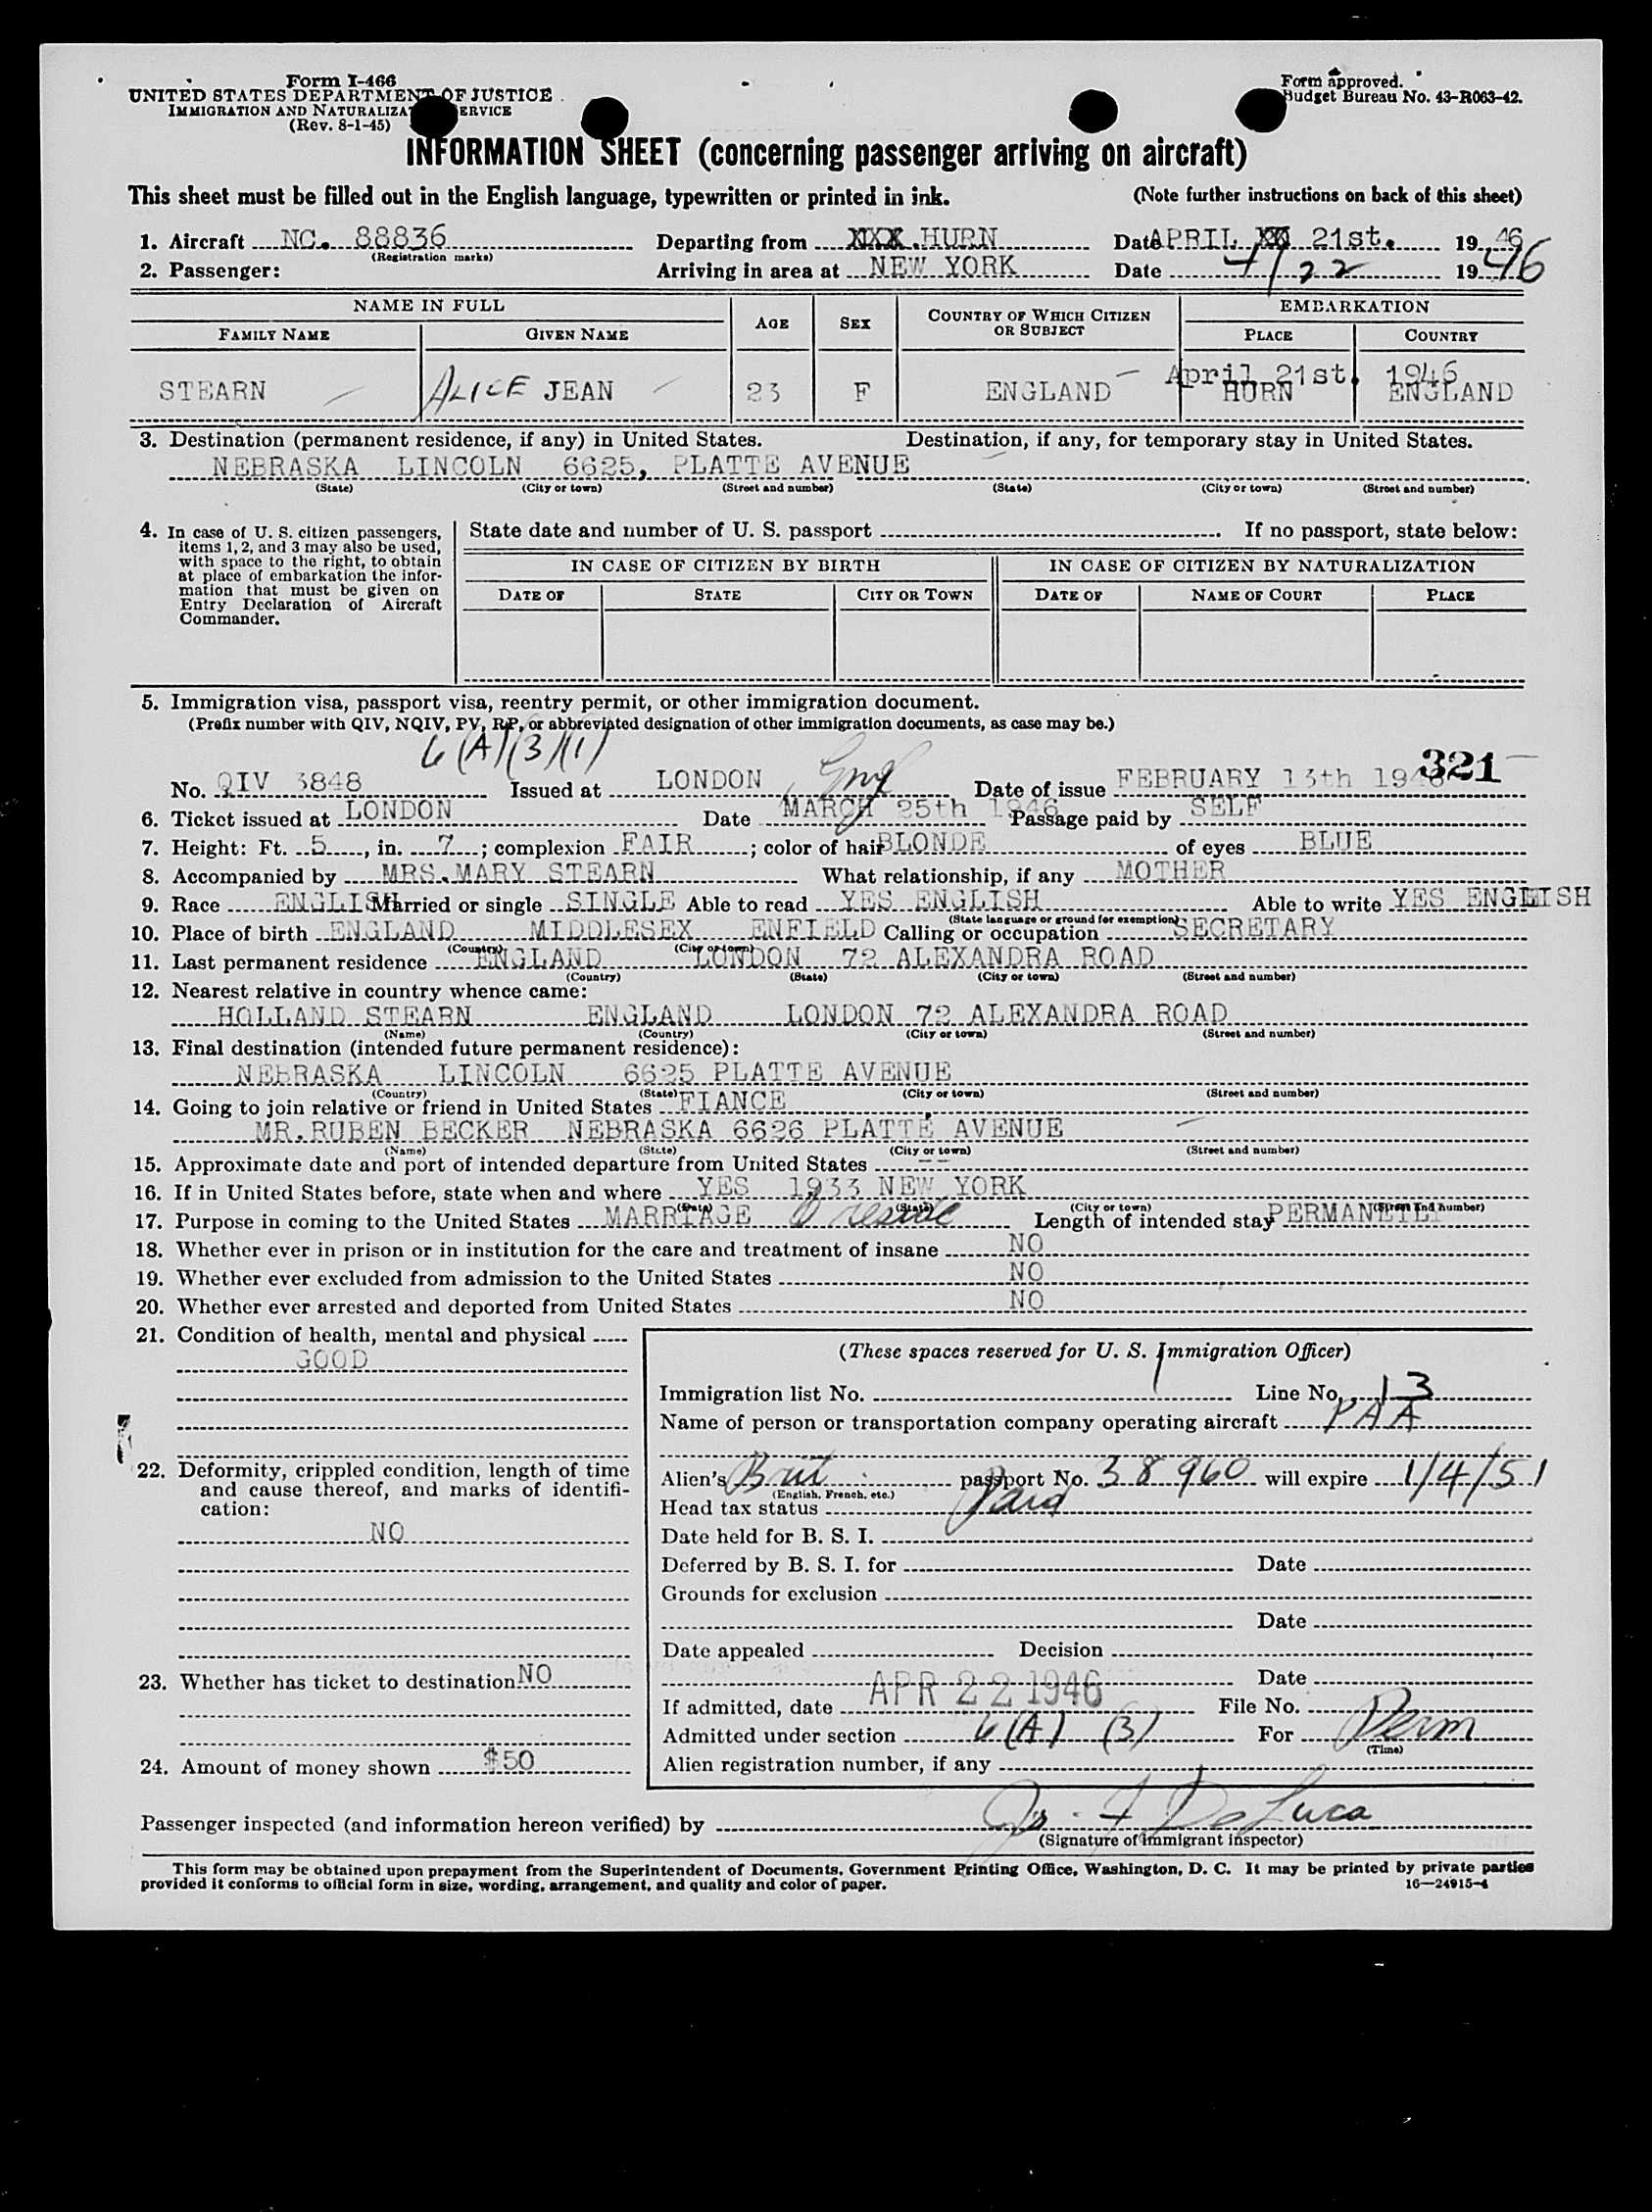 Form I-466
UNITED STATES DEPARTMENT OF JUSTICE
IMMIGRATION AND NATURALIZATION SERVICE
(Rev. 8-1-45)
Form approved.
Budget Bureau No. 43-R063-42.
INFORMATION SHEET (concerning passenger arriving on aircraft)
This sheet must be filled out in the English language, typewritten or printed in ink. (Note further instructions on back of this sheet)
1. Aircraft NC. 88836 Departing from XXXX HURN Date APRIL XX 21st. 19 46
(Registration marks)
2. Passenger: Arriving in area at NEW YORK Date 4/22 19 46
NAME IN FULL AGE SEX COUNTRY OF WHICH CITIZEN OR SUBJECT EMBARKATION
FAMILY NAME GIVEN NAME PLACE COUNTRY
April 21st. 1946
STEARN ALICE JEAN 23 F ENGLAND HURN ENGLAND
3. Destination (permanent residence, if any) in United States. Destination, if any, for temporary stay in United States.
NEBRASKA LINCOLN 6625, PLATTE AVENUE
(State) (City or town) (Street and number) (State) (City or town) (Street and number)
4. In case of U. S. citizen passengers, items 1, 2, and 3 may also be used, with space to the right, to obtain at place of embarkation the information that must be given on Entry Declaration of Aircraft Commander.
State date and number of U. S. passport If no passport, state below:
IN CASE OF CITIZEN BY BIRTH IN CASE OF CITIZEN BY NATURALIZATION
DATE OF STATE CITY OR TOWN DATE OF NAME OF COURT PLACE
5. Immigration visa, passport visa, reentry permit, or other immigration document.
(Prefix number with QIV, NQIV, PV, RP, or abbreviated designation of other immigration documents, as case may be.)
6(A)(3)(1)
321
No. QIV 3848 Issued at LONDON Eng Date of issue FEBRUARY 13th 1946
6. Ticket issued at LONDON Date MARCH 25th 1946 Passage paid by SELF
7. Height: Ft. 5, in. 7; complexion FAIR; color of hair BLONDE of eyes BLUE
8. Accompanied by MRS. MARY STEARN What relationship, if any MOTHER
9. Race ENGLISH Married or single SINGLE Able to read YES ENGLISH Able to write YES ENGLISH
(State language or ground for exemption)
10. Place of birth ENGLAND MIDDLESEX ENFIELD Calling or occupation SECRETARY
(Country) (City or town)
11. Last permanent residence ENGLAND LONDON 72 ALEXANDRA ROAD
(Country) (State) (City or town) (Street and number)
12. Nearest relative in country whence came:
HOLLAND STEARN ENGLAND LONDON 72 ALEXANDRA ROAD
(Name) (Country) (City or town) (Street and number)
13. Final destination (intended future permanent residence):
NEBRASKA LINCOLN 6625 PLATTE AVENUE
(Country) (State) (City or town) (Street and number)
14. Going to join relative or friend in United States FIANCE
MR. RUBEN BECKER NEBRASKA 6626 PLATTE AVENUE
(Name) (State) (City or town) (Street and number)
15. Approximate date and port of intended departure from United States --
16. If in United States before, state when and where YES 1933 NEW YORK
(Date) (State) (City or town) (Street and number)
17. Purpose in coming to the United States MARRIAGE reside Length of intended stay
18. Whether ever in prison or in institution for the care and treatment of insane NO
19. Whether ever excluded from admission to the United States NO
20. Whether ever arrested and deported from United States NO
21. Condition of health, mental and physical
GOOD
22. Deformity, crippled condition, length of time and cause thereof, and marks of identification:
NO
23. Whether has ticket to destination NO
24. Amount of money shown $50
(These spaces reserved for U. S. Immigration Officer)
Immigration list No. Line No. 13
Name of person or transportation company operating aircraft PAA
Alien's Brit passport No. 38960 will expire 1/4/51
(English, French, etc.)
Head tax status Paid
Date held for B. S. I.
Deferred by B. S. I. for Date
Grounds for exclusion
Date
Date appealed Decision
Date
If admitted, date APR 22 1946 File No.
Admitted under section 6(A) (3) For Perm
(Time)
Alien registration number, if any
Passenger inspected (and information hereon verified) by Jos. F DeLuca
(Signature of immigrant inspector)
This form may be obtained upon prepayment from the Superintendent of Documents, Government Printing Office, Washington, D. C. It may be printed by private parties
provided it conforms to official form in size, wording, arrangement, and quality and color of paper. 16—24915-4